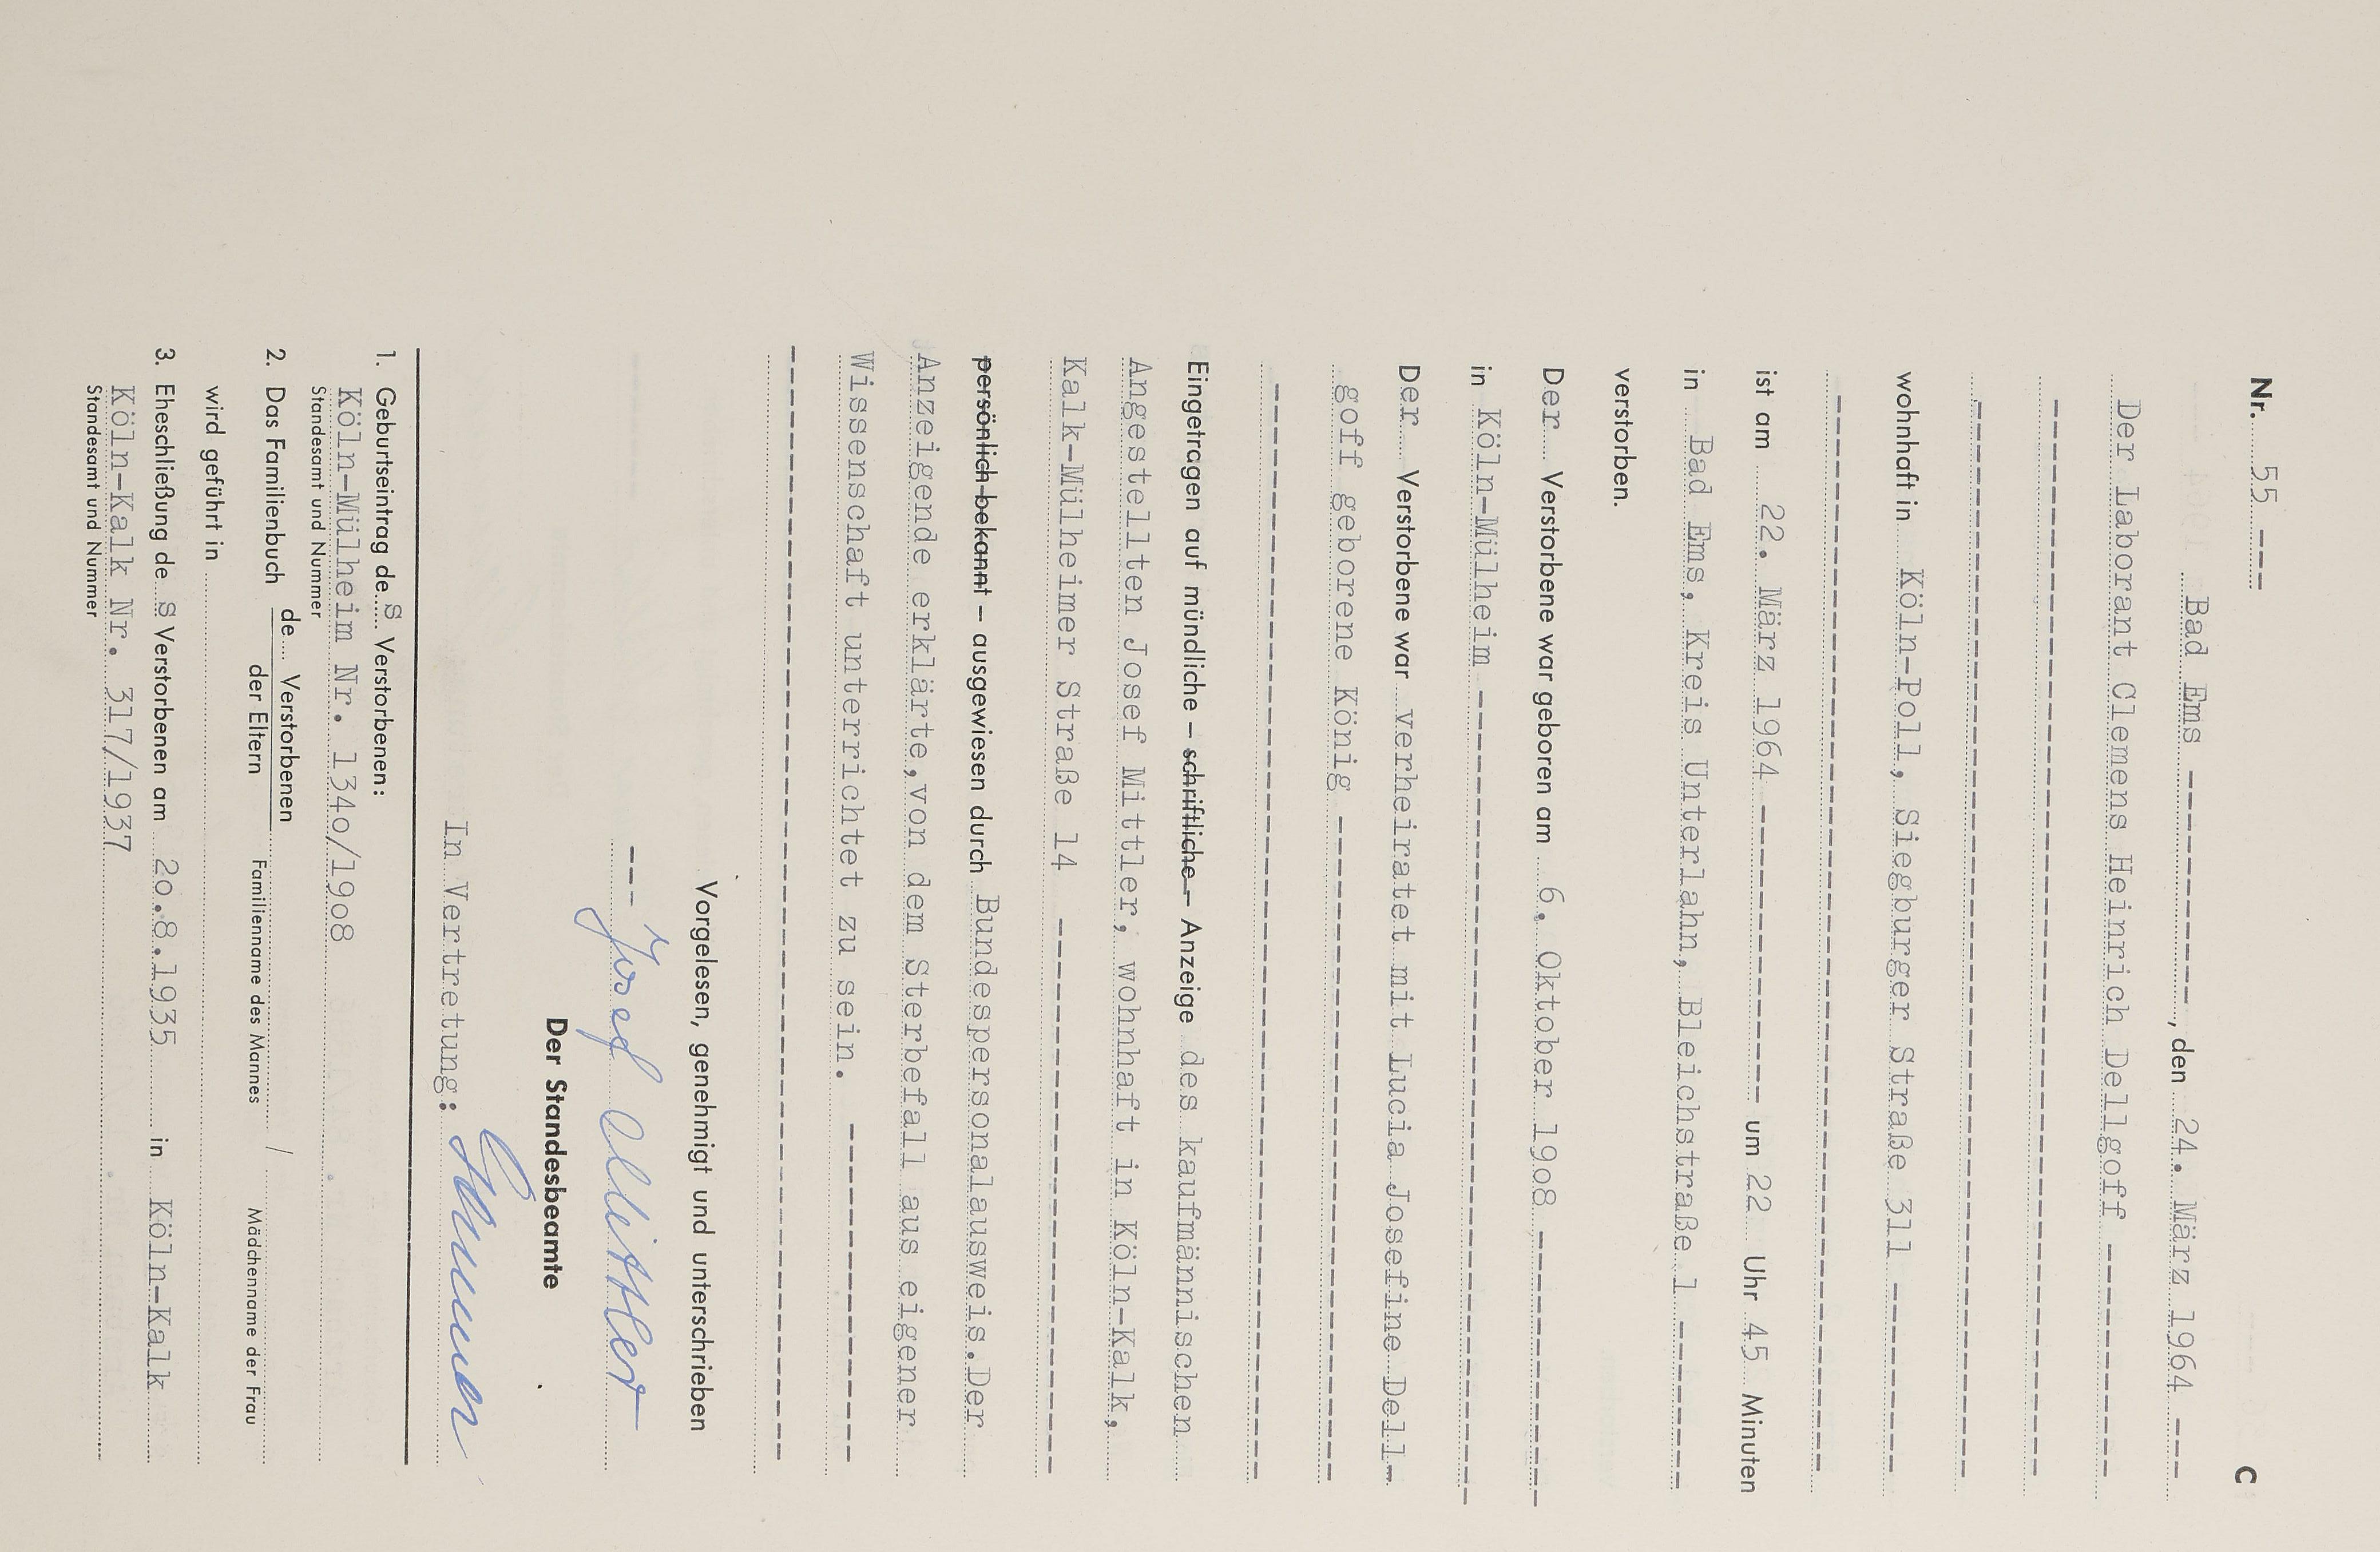 Nr. 55 --- C
Bad Ems ------------, den 24. März 1964 ---
Der Laborant Clemens Heinrich Dellgoff ------------
wohnhaft in Köln-Poll, Siegburger Straße 311 ----------
ist am 22. März 1964 --------------- um 22 Uhr 45 Minuten
in Bad Ems, Kreis Unterlahn, Bleichstraße 1 ---------
verstorben.
Der Verstorbene war geboren am 6. Oktober 1908 --------------
in Köln-Mülheim ----------------------------------------
Der Verstorbene war verheiratet mit Lucia Josefine Dell-
goff geborene König ---------------------------------
Eingetragen auf mündliche – schriftliche – Anzeige des kaufmännischen
Angestellten Josef Mittler, wohnhaft in Köln-Kalk,
Kalk-Mülheimer Straße 14 ----------------------------
persönlich bekannt – ausgewiesen durch Bundespersonalausweis.Der
Anzeigende erklärte,von dem Sterbefall aus eigener
Wissenschaft unterrichtet zu sein. -----------------
Vorgelesen, genehmigt und unterschrieben
--- Josef Mittler
Der Standesbeamte
In Vertretung:
1. Geburtseintrag de s Verstorbenen:
Köln-Mülheim Nr. 134o/19o8
Standesamt und Nummer
2. Das Familienbuch de Verstorbenen
der Eltern Familienname des Mannes / Mädchenname der Frau
wird geführt in
3. Eheschließung de s Verstorbenen am 2o.8.1935 in Köln-Kalk
Köln-Kalk Nr. 317/1937
Standesamt und Nummer